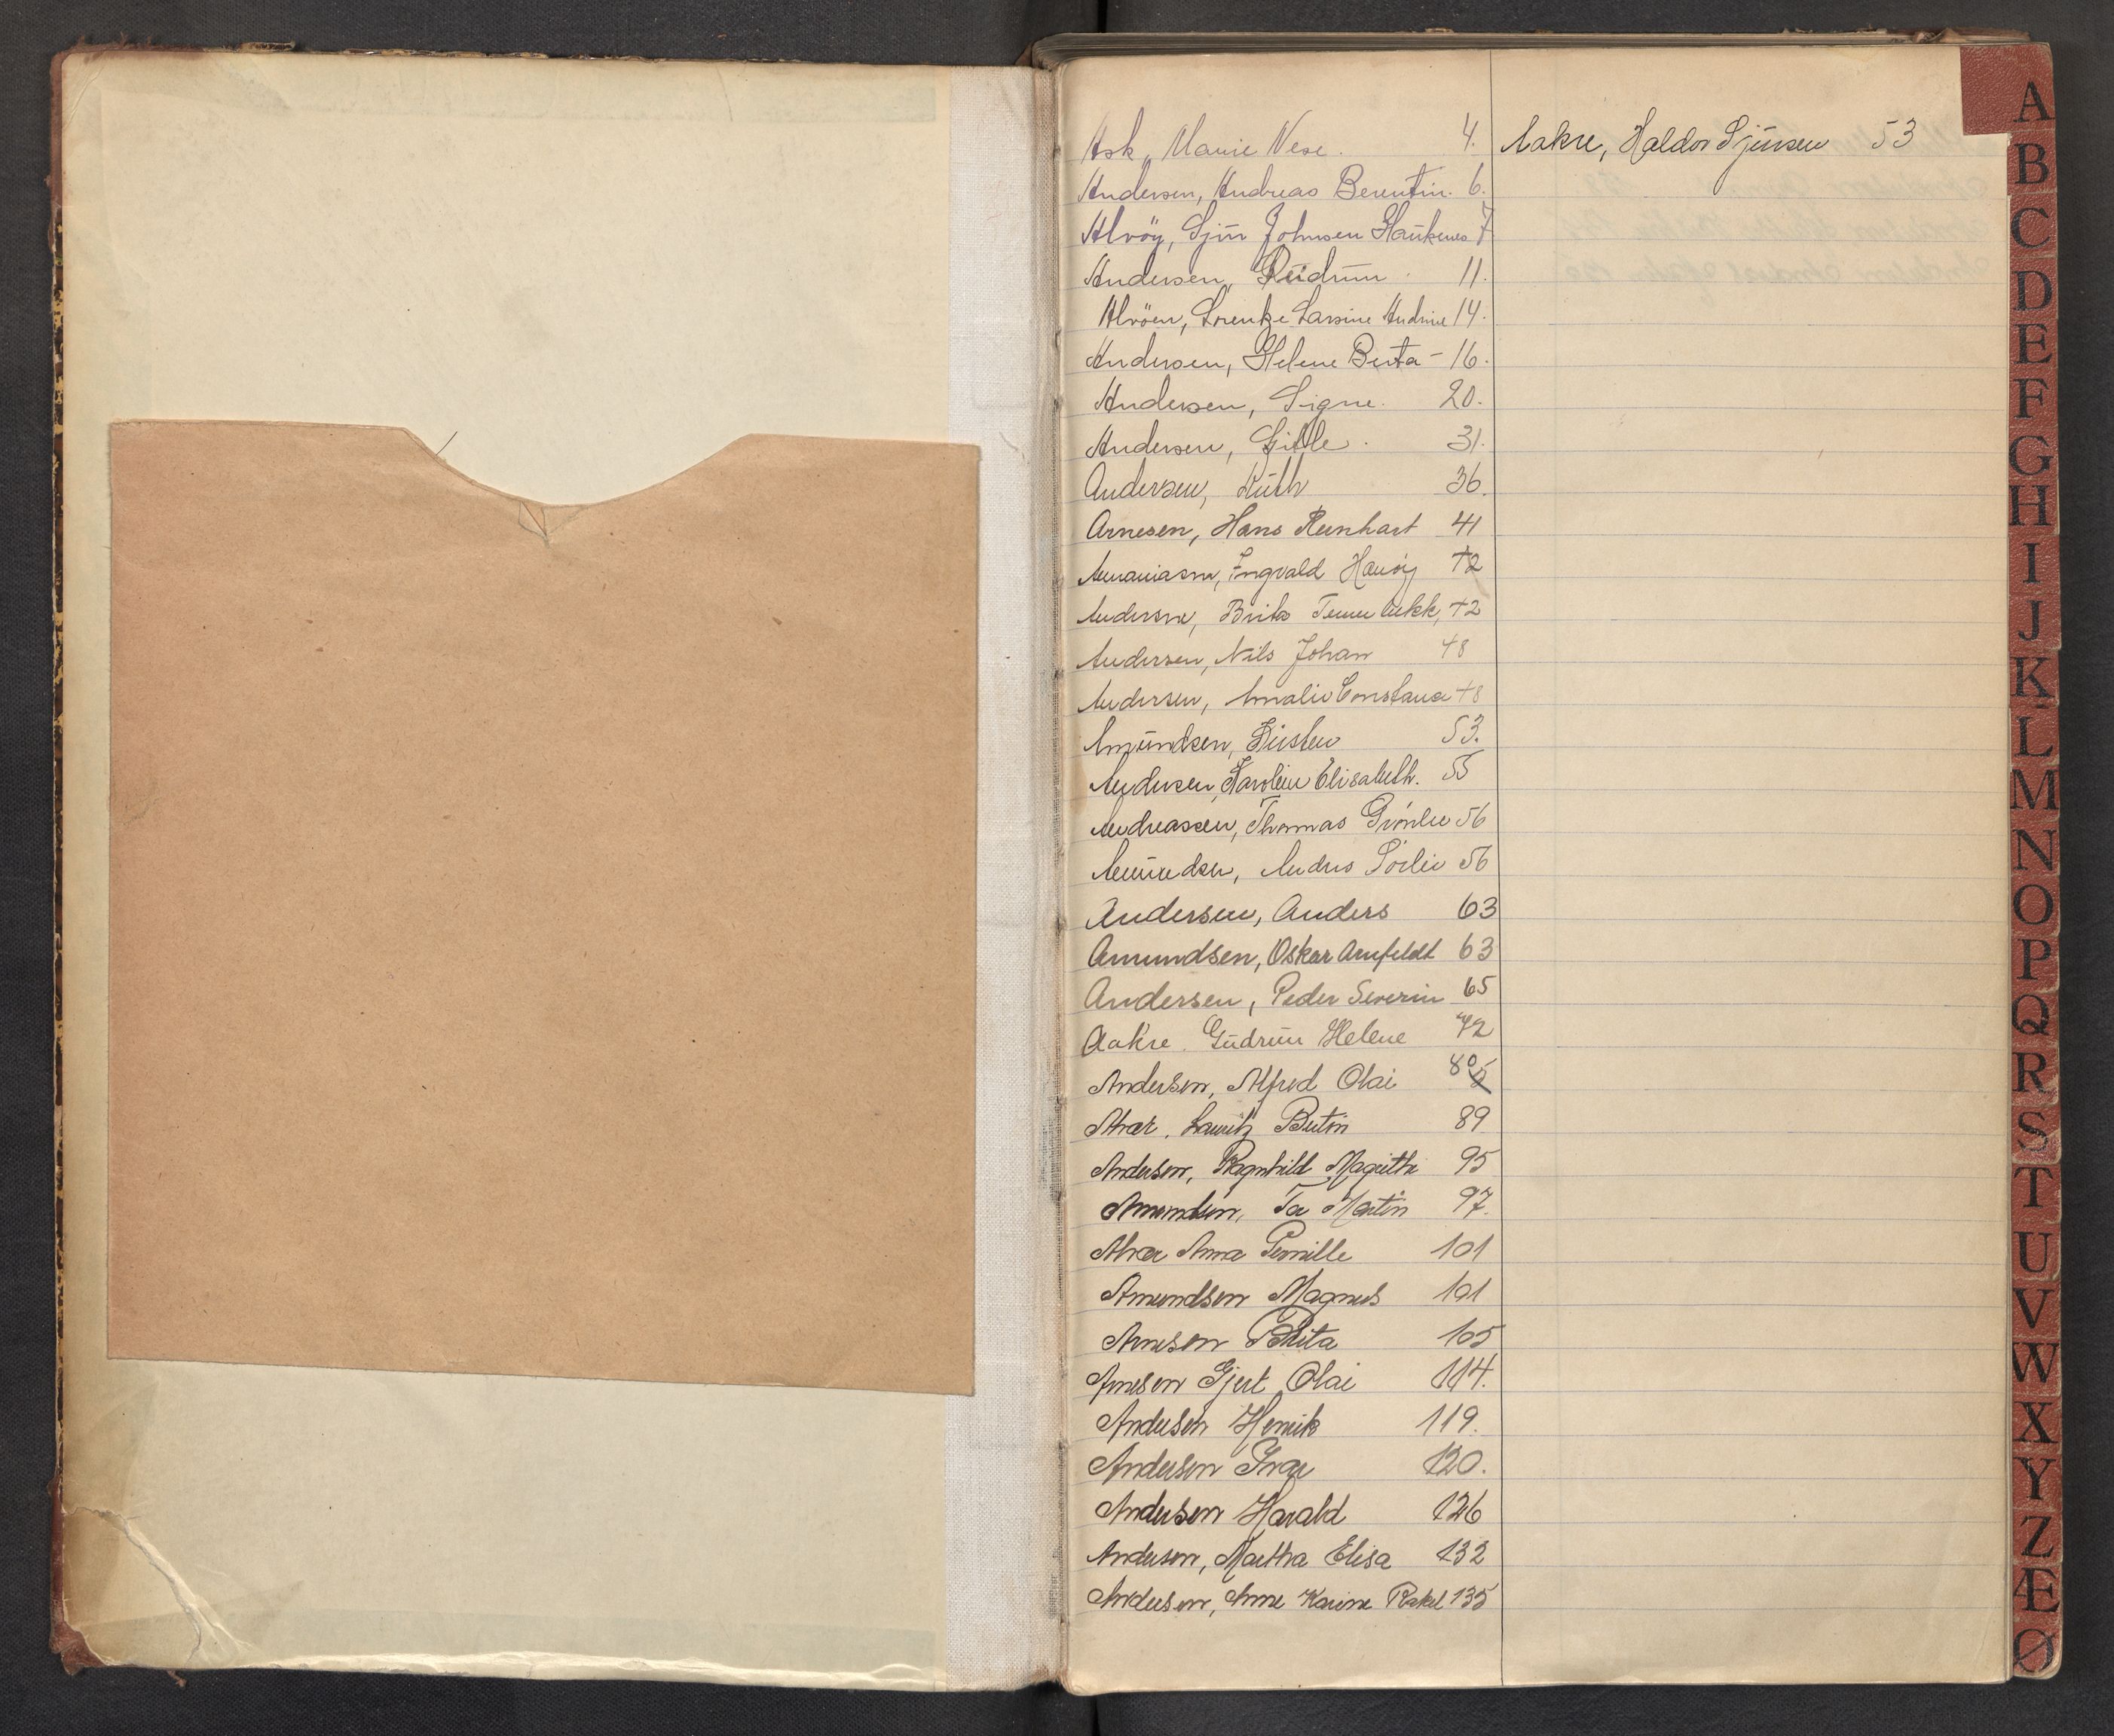 Ask, Marie Nese. 4.
Andersen, Andreas Berentin. 6.
Alvöy, Sjūr Johnsen Haukenes 7
Andersen, Gūdrūn. 11.
Alvöen, Lorentze Larsine Andrine 14.
Andersen, Helene Berta - 16.
Andersen, Signe. 20.
Andersen, 31.
Andersen, Rūth 36.
Arnesen, Hans Reinhart 41
Ananiasen, Ingvald Hanöy 42
Andersen, 42
Andersen, Nils Johan 48
Andersen, Amalie Constance 48
Amūndsen, Kirsten 53.
Andersen, Karoline Elisabeth. 55
Andreassen, Thomas Grönlie 56
Amūndsen, Andrs 56
Andersen, Anders 63
Amundsen, Oskar Arnfeldt 63
Andersen, Peder Severin 65
Aakre. Gūdrūn Helene 72
Andersen, Alfred Olai 80
Alvær. Lauritz Bertin 89
Andersen, Ragnhild Magrethe 95
Amundsen, Tor Martin 97.
Alvær Anna Pernille 101
Amundsen Magnus 101
Arnesen Rita 105
Arnesen Gjert Olai 114.
Andersen Henrik 119.
Andersen Ivar 120.
Andersen Harald 126
Andersen, Martha Elisa 132
Andersen, Anne Karine Rakel 135
Aakre, Haldor Sjūrsen 53
A
B
C
D
E
F
G
H
I
J
K
L
M
N
O
P
Q
R
S
T
U
V
W
X
Y
Z
Æ
Ø